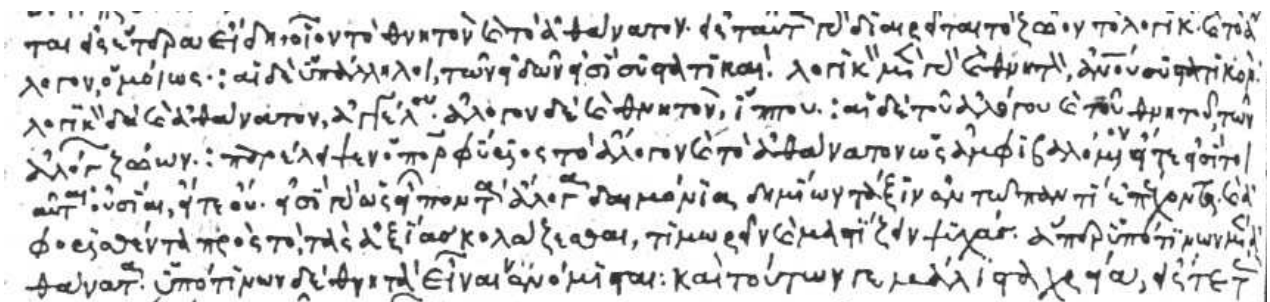 ται εἰς ἕτερα εἴδη οἷον τὸ θνητὸν καὶ τὸ ἀθάνατον. εἰς ταῦτα γὰρ διαιρεῖται τὸ ζῶον τὸ λογικὸν καὶ τὸ ἄ
λογον, ὁμοίως : αἱ δὲ ὑπάλληλοι, τῶν εἰδῶν εἰσὶ συστατικαί. λογικὸν μὲν γὰρ καὶ θνητὸν, ἀνθρώπου συστατικόν.
λογικὸν δὲ καὶ ἀθάνατον, ἀγγέλου. ἄλογον δὲ καὶ θνητὸν, ἵππου : αἱ δὲ τοῦ ἀλόγου καὶ τοῦ θνητοῦ, τῶν
ἀλόγων ζώων : παρέλειψεν ὁ πορφύριος τὸ ἄλογον καὶ τὸ ἀθάνατον ὡς ἀμφιβαλόμενον εἴτε
αὗται οὐσίαι, εἴτε οὔ. εἰσὶ γὰρ ὡς εἴπομεν ἄλογα δαιμόνια, δημίων τάξιν ἐν τῶ παντὶ ἐπέχοντα καὶ ἀ
φορισθέντα πρὸς τὸ, τὰς ἀξίας κολάζεσθαι, τιμωρεῖν καὶ μαστίζειν ψυχάς. ἅπερ ὑπό τινων μὲν ἀ
θάνατα. ὑπό τινων δὲ θνητὰ εἶναι νενόμισται : καὶ τούτων γε μάλιστα χρεία, εἴς τε τ